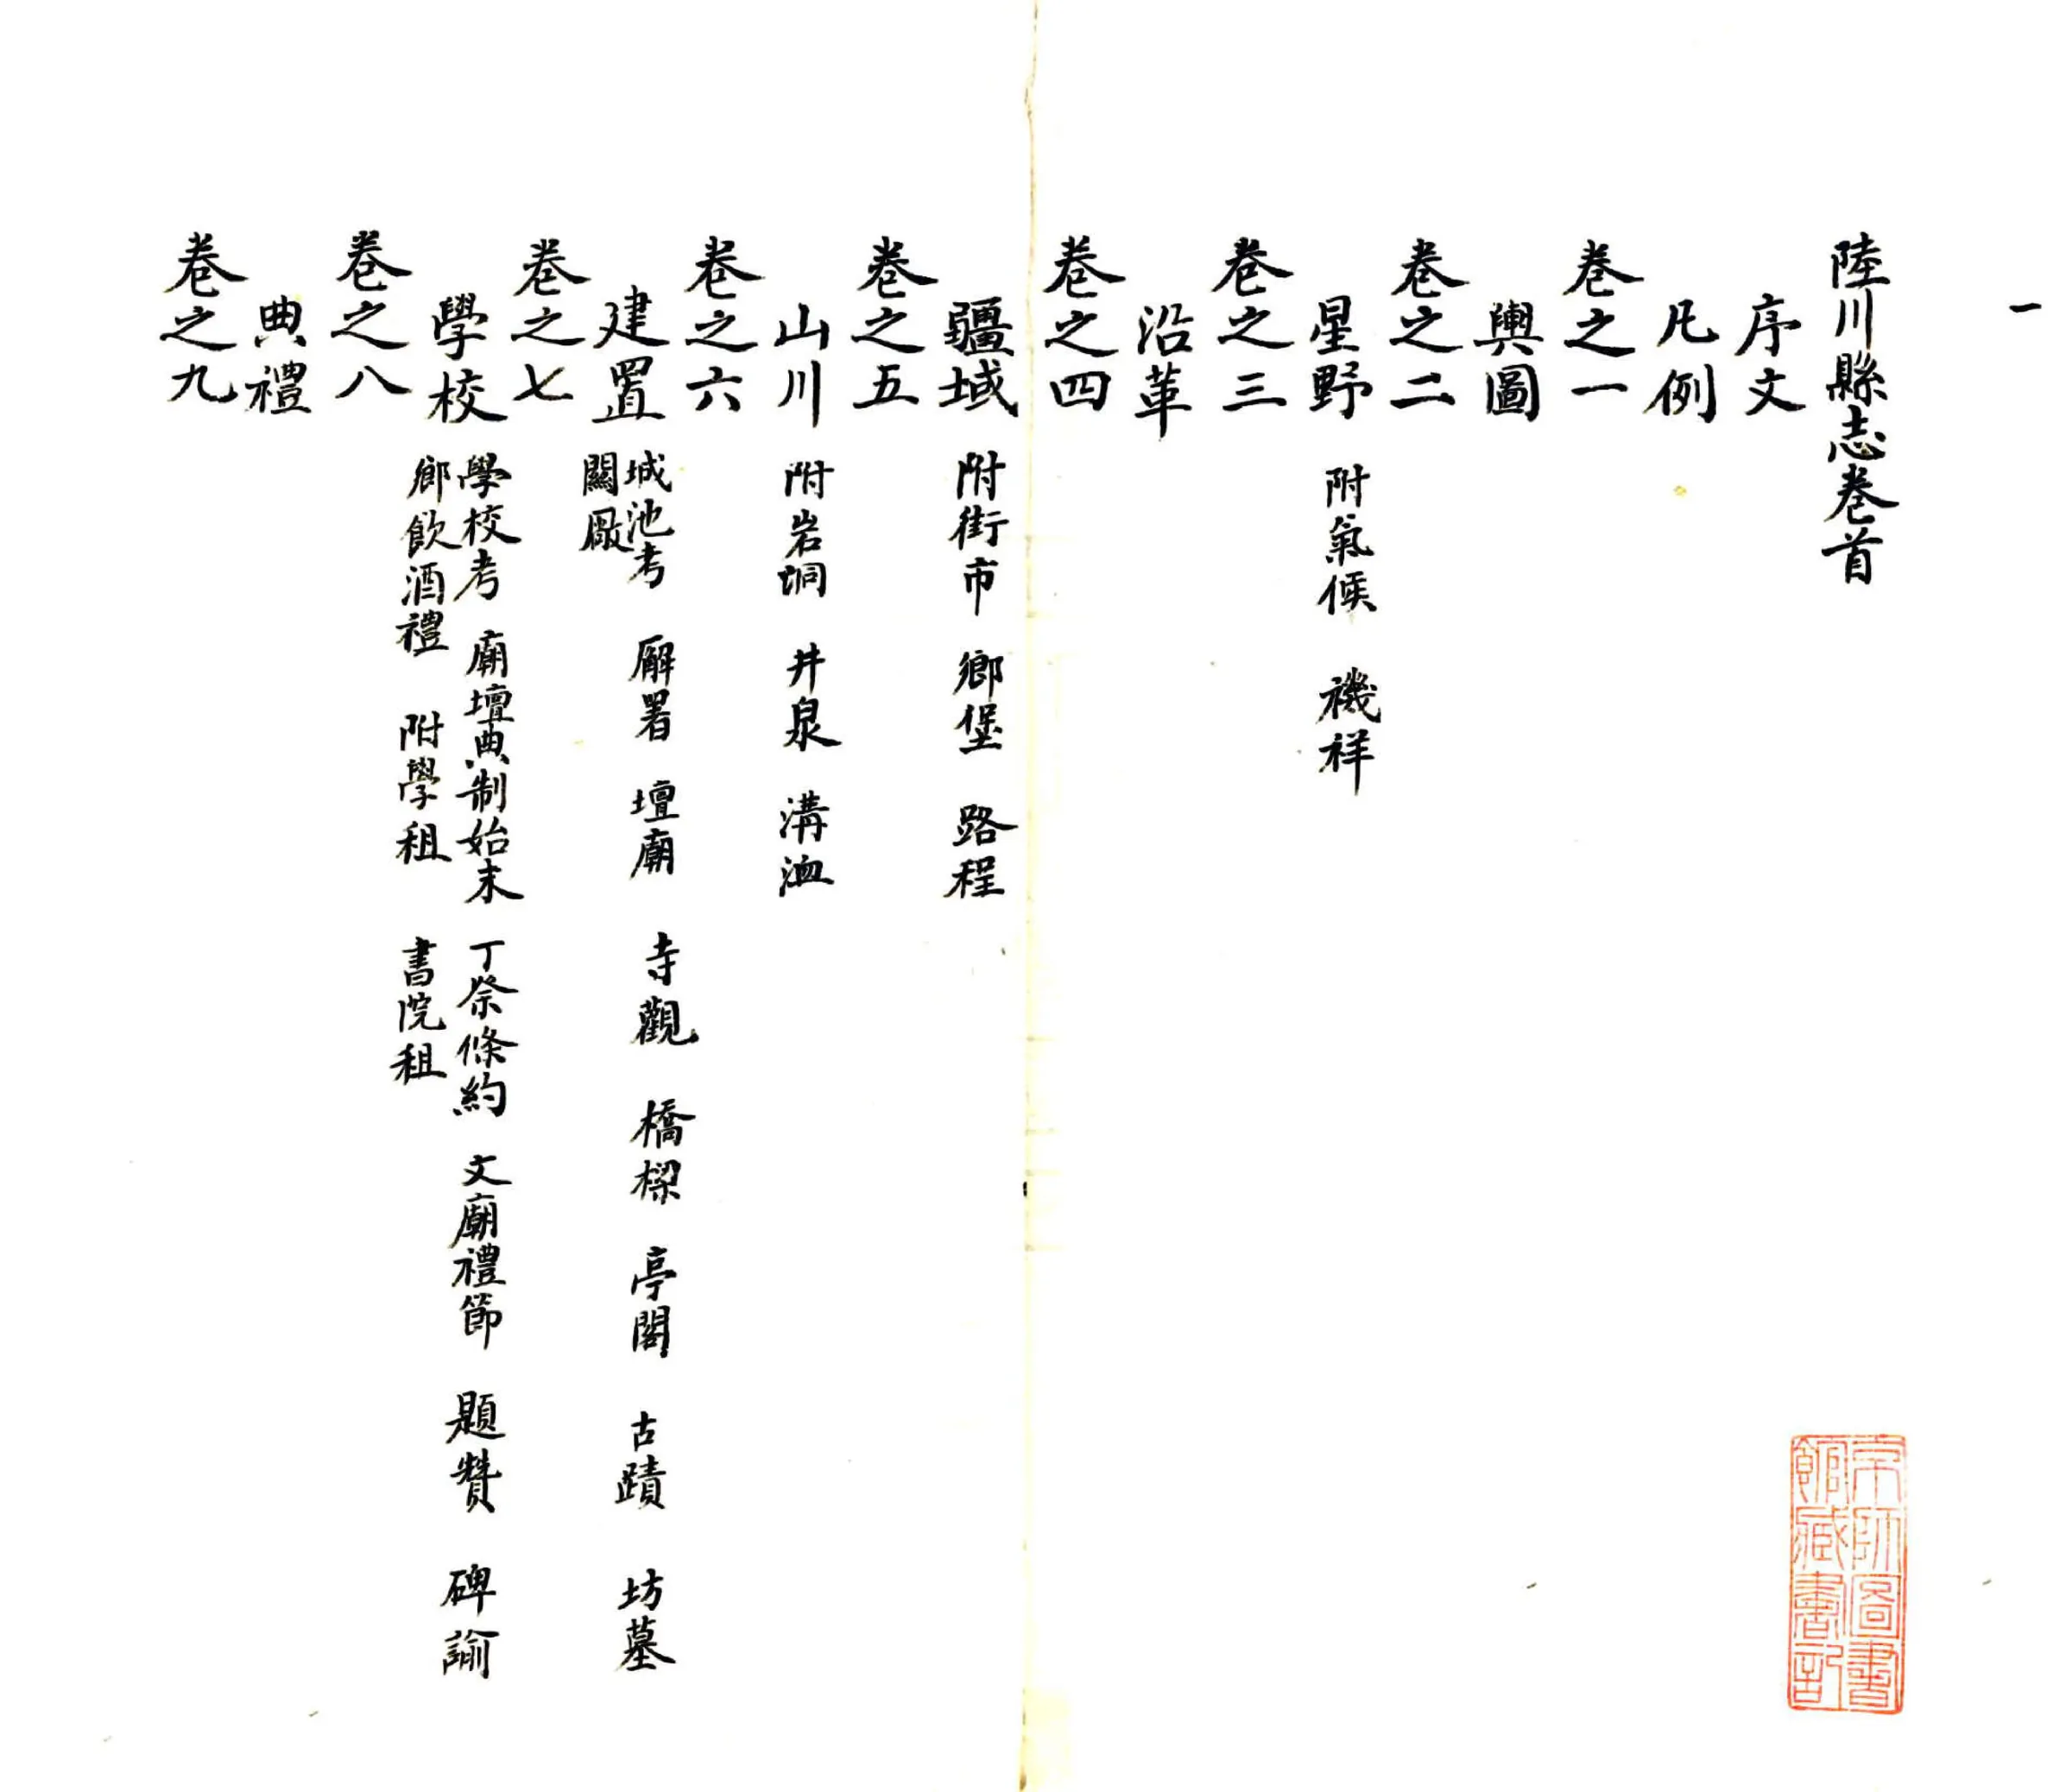 一
陸川縣志卷首
序文
凡例
卷之一
輿圖
卷之二
星野 附氣候 禨祥
卷之三
沿革
卷之四
疆域 附街市 鄉堡 路程
卷之五
山川 附岩垌 井泉 溝洫
卷之六
建置 城池考 廨署 壇廟 寺觀 橋樑 亭閣 古蹟 坊墓
關廠
卷之七
學校 學校考 廟壇典制始末 丁祭條約 文廟禮節 題贊 碑諭
鄉飲酒禮 附學租 書院租
卷之八
典禮
卷之九
京師圖書
館藏書記